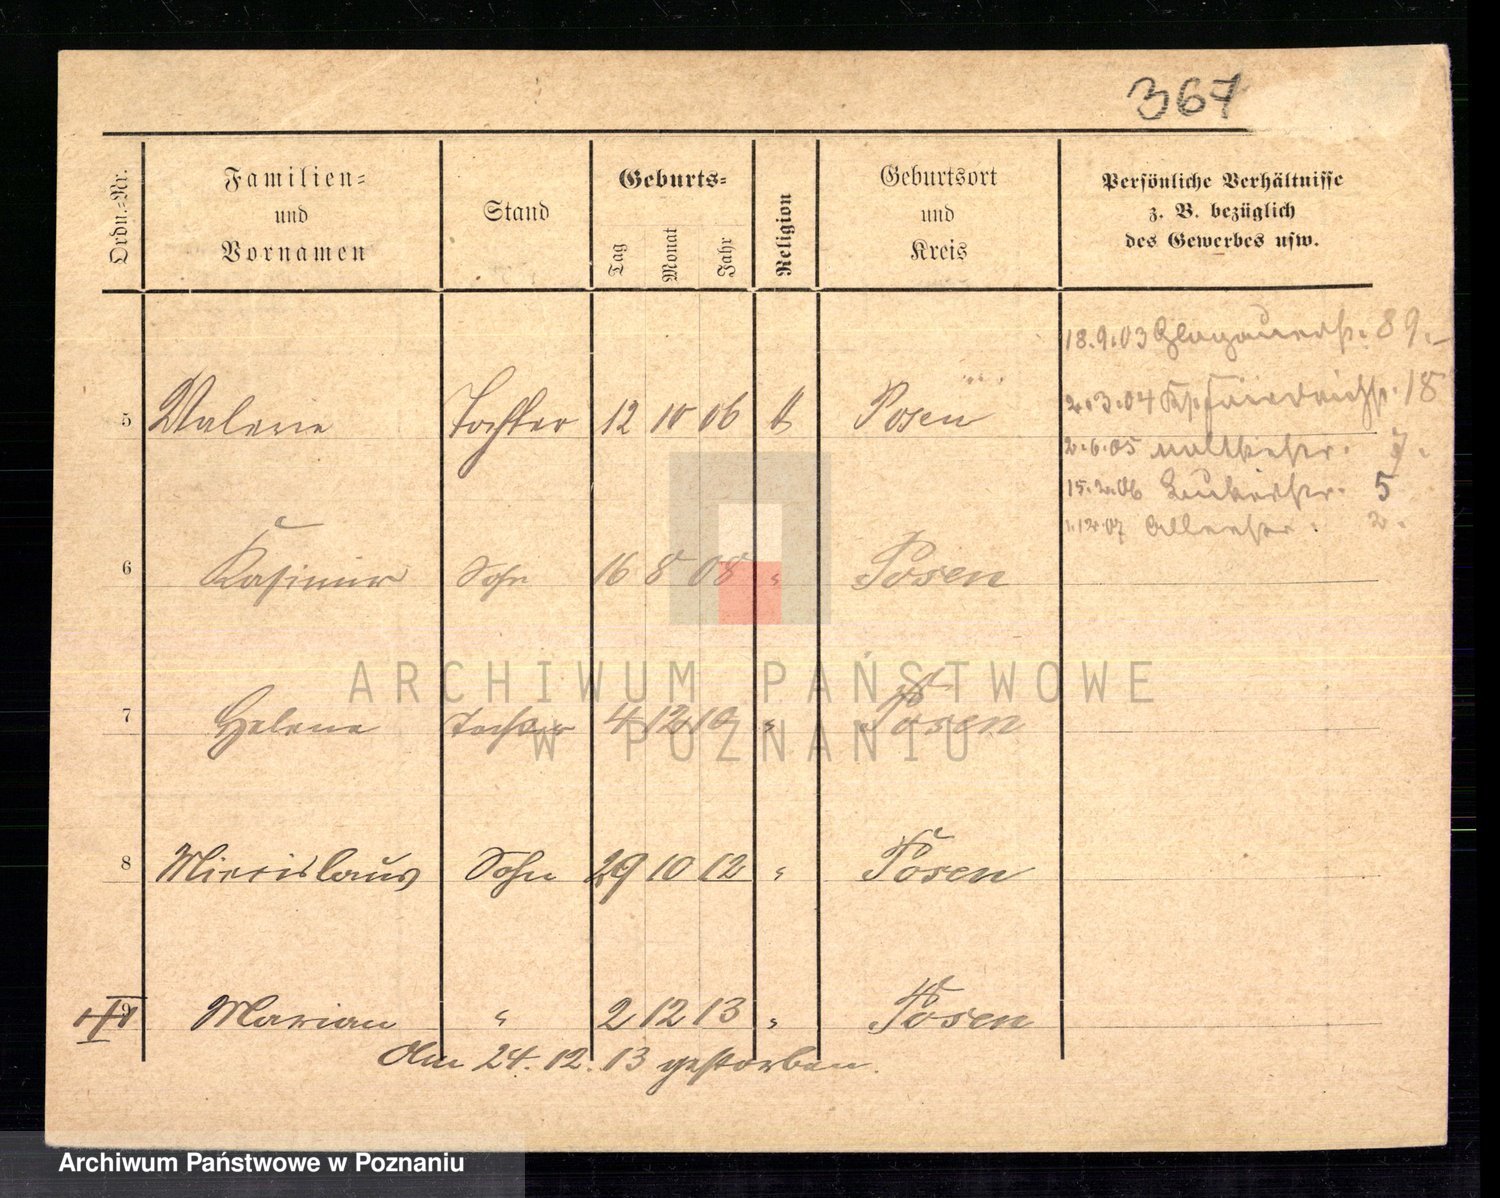 367
Ordn.=Nr.
Familien=
und
Vornamen
Stand
Geburts=
Tag
Monat
Jahr
Religion
Geburtsort
und
Kreis
Persönliche Verhältnisse
z. B. bezüglich
des Gewerbes usw.
18.9.03 Glogauerstr. 89.
2.3.04 18
2.6.05 Moltkestr. 7.
15.2.06 5
1.12.07 2.
5 Valerie Tochter 12 10 06 k Posen
6 Kasimir Sohn 16 8 08 " Posen
7 Helene Tochter 4 12 10 " Posen
8 Miecislaus Sohn 29 10 12 " Posen
9 Marian " 2 12 13 " Posen
Am 24.12.13 gestorben.
ARCHIWUM PAŃSTWOWE
W POZNANIU
Archiwum Państwowe w Poznaniu